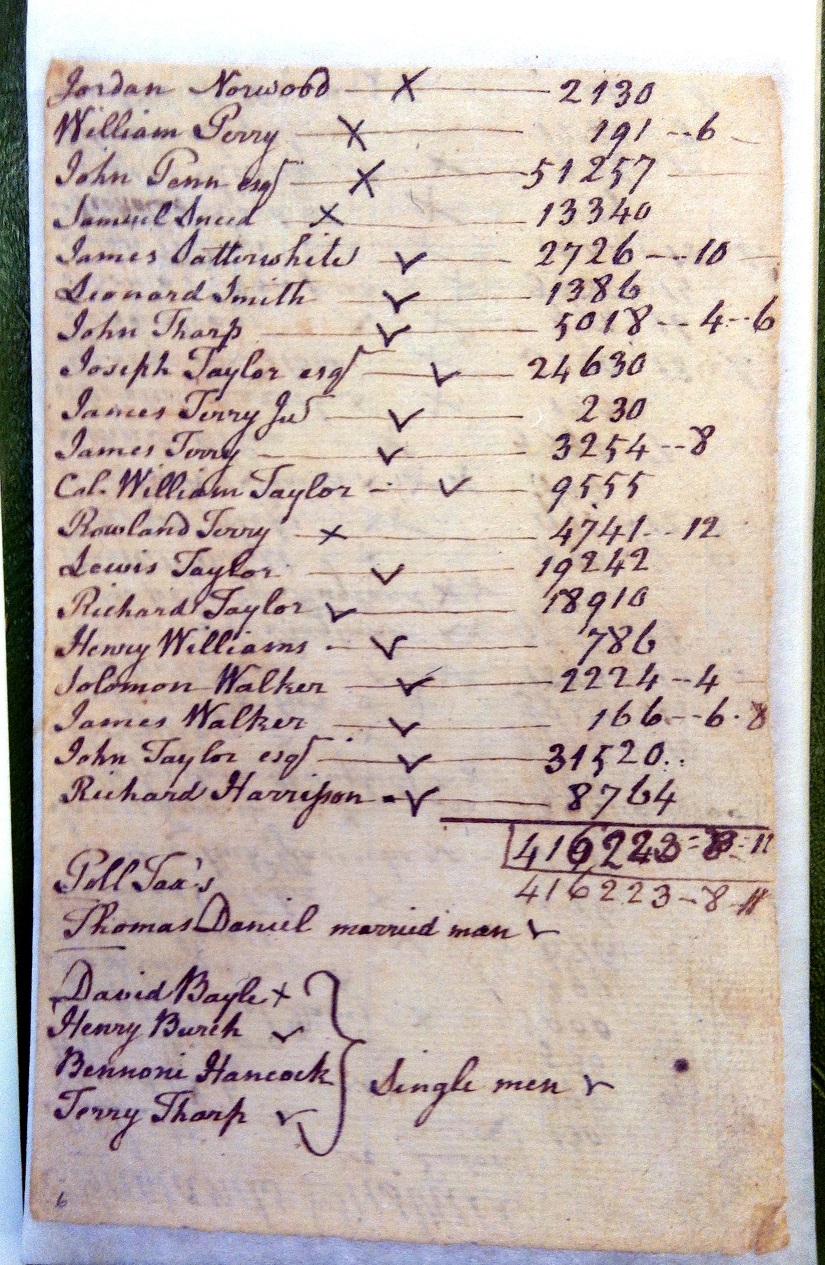 Jordan Norwood — X — 2130
William Perry — X — 191 -- 6
John Penn esqr — X — 51257
Samuel Sneed — X — 13340
James Satterwhite ✓ — 2726 -- 10
Leonard Smith — ✓ — 1386
John Tharp — ✓ — 5018 -- 4 -- 6
Joseph Taylor esqr — ✓ — 24630
James Terry Jur — ✓ — 230
James Terry — ✓ — 3254 -- 8
Col. William Taylor - ✓ — 9555
Rowland Terry — X — 4741 -- 12
Lewis Taylor — ✓ — 19242
Richard Taylor ✓ — 18910
Henry Williams - ✓ — 786
Solomon Walker — ✓ — 2224 -- 4
James Walker — ✓ — 166 -- 6 . 8
John Taylor esqr — ✓ — 31520
Richard Harrison - ✓ — 8764
416223 = 8 = 11
Poll Tax's 416223 - 8 - 11
Thomas Daniel married man ✓
David Bayle X
Henry Burch ✓
Bennoni Hancock } Single men ✓
Terry Tharp ✓
6